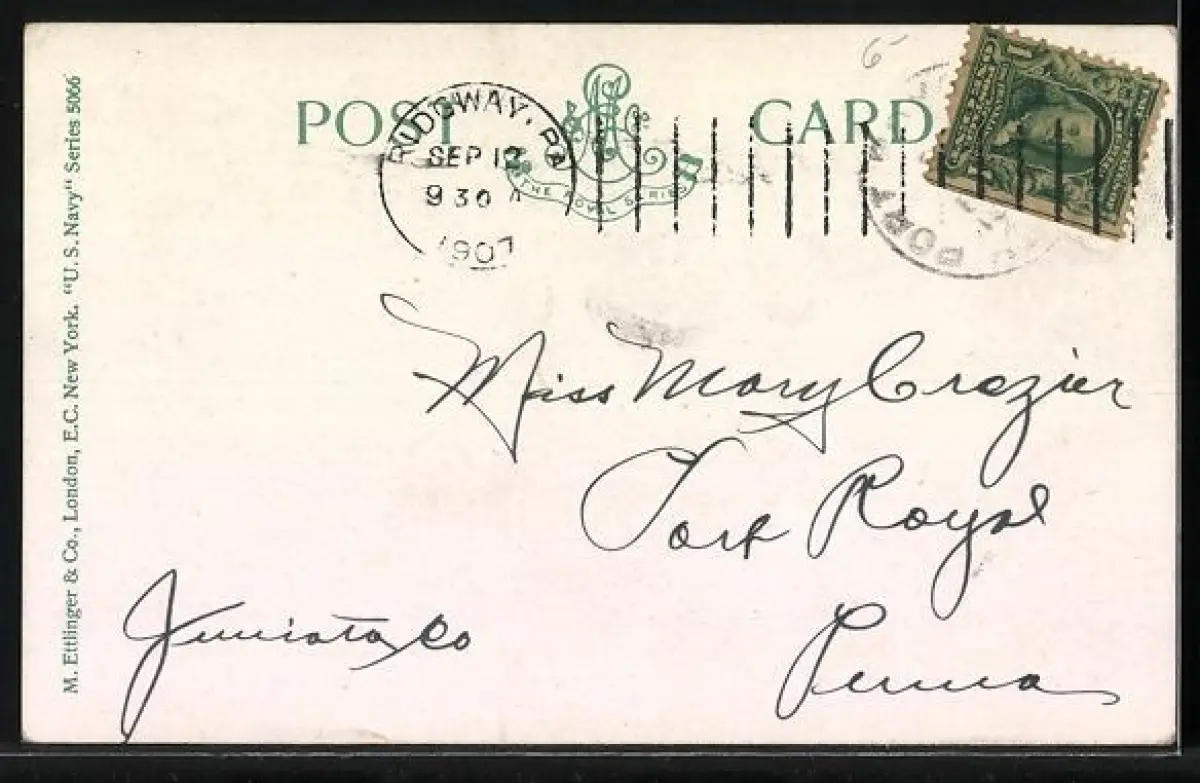 POST CARD
THE ROYAL SERIES
RIDGWAY, PA
SEP 12
9 30 A
1907
6
PORT
Miss Mary Crozier
Port Royal
Juniata Co
Penna
M. Ettlinger & Co., London, E.C. New York. "U. S. Navy" Series 5066